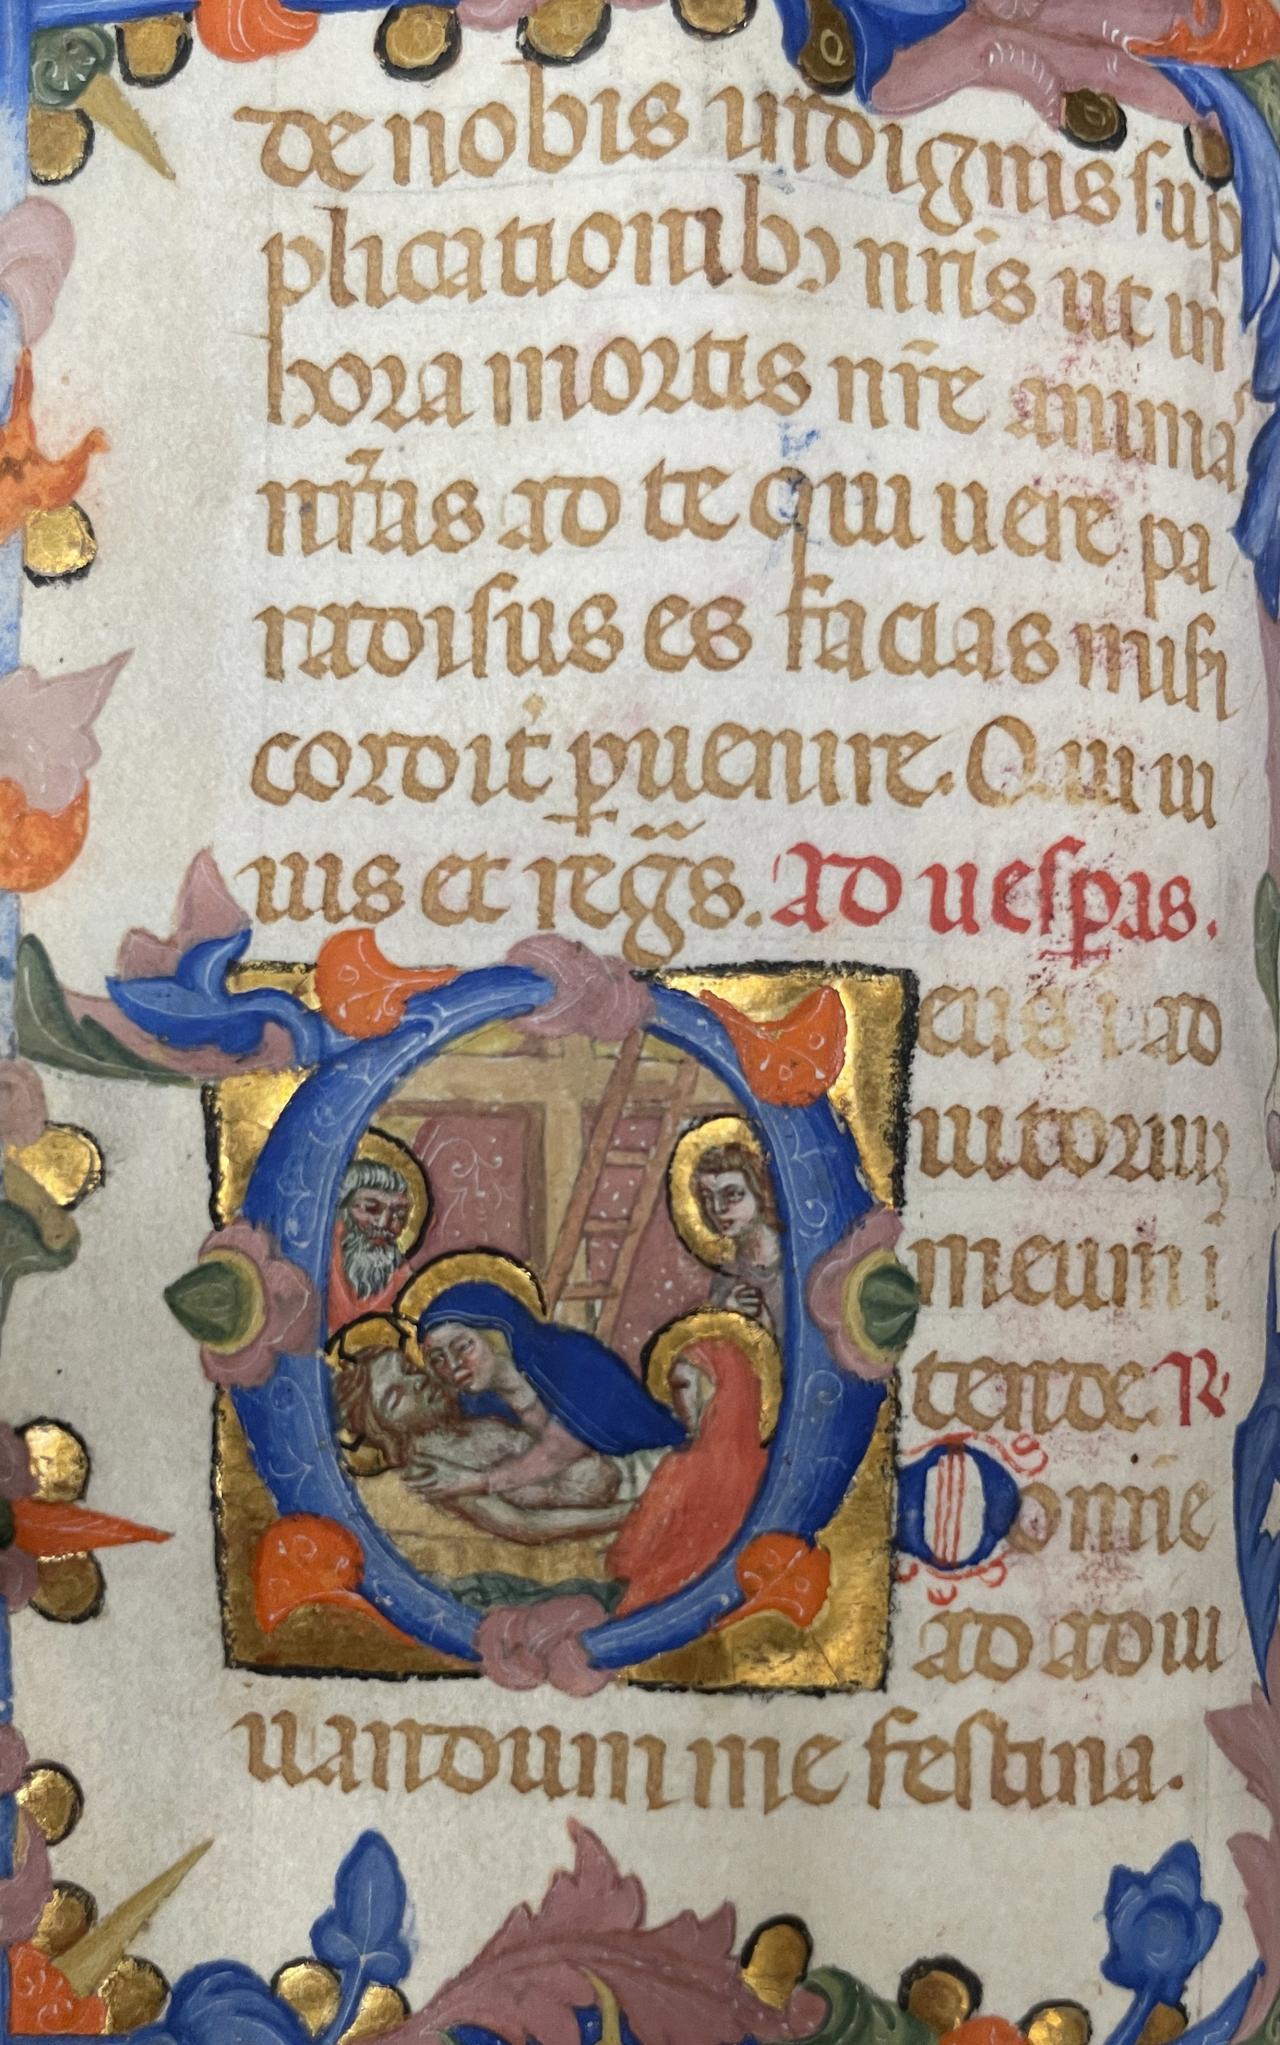 de nobis indignis sup
plicationibꝫ nr̄is ut in
hora mortis nr̄e animas
nr̄as ad te qui uere pa
radisus es facias misi
cordit̓ ꝑuenire. Qui ui
uis et regͣs. Ad uesꝑas.
eus ī ad
iutoriuꝫ
meum i
tende. R
Domīe
ad adiu
uandum me festina.